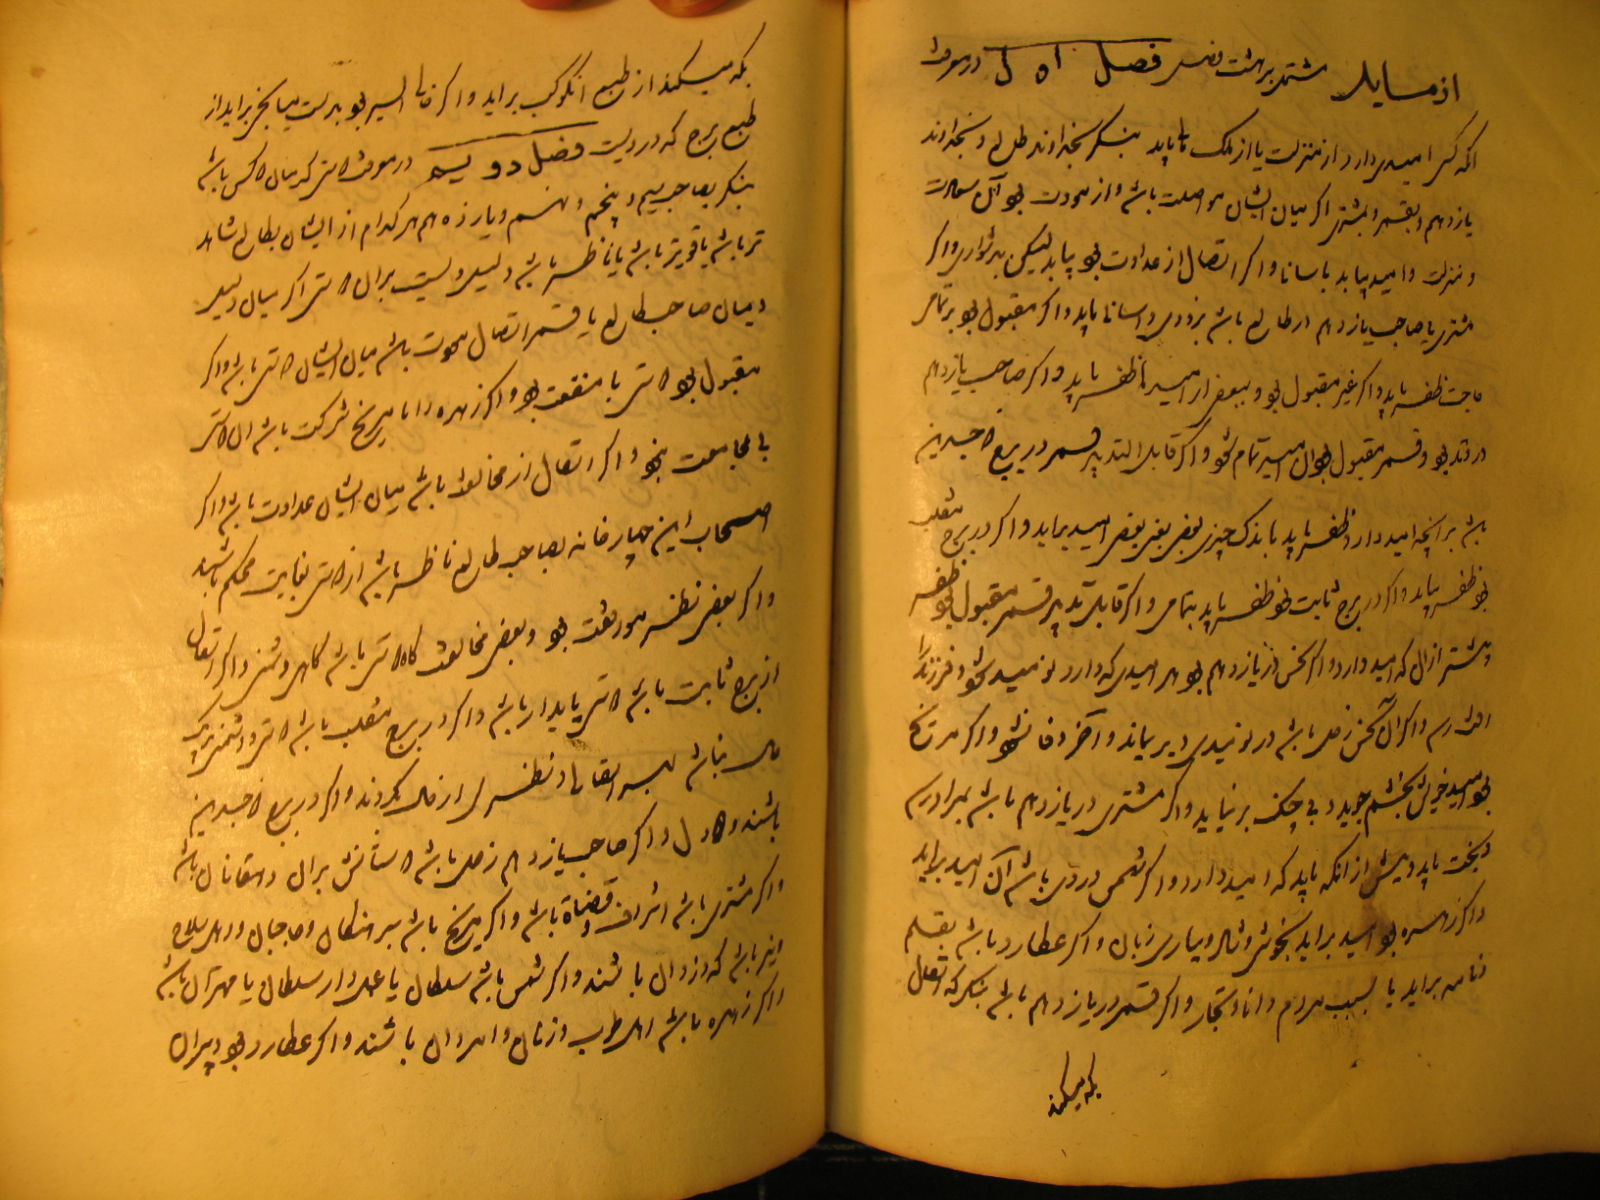 از مسایل مشتمل بر هشت فصل فصل اول در معرفت
انکه کسی امیدی دارد از منزلت یا از ملک یابد بنگر بخداوند طالع و بخداوند
یازدهم و بقمر و بمشتری اگر میان ایشان مواصلت باشد و از مودت بود آن سعادت
و منزلت و امید بیابد باسانی و اگر اتصال از عداوت بود بیابد لیکن بدشواری و اگر
مشتری یا صاحب یازدهم در طالع باشد بزودی و اسانی یابد و اگر مقبول بود بر تمامی
حاجت ظفر یابد و اگر غیر مقبول بود و ببعضی از امید ظفر یابد و اگر صاحب یازدهم
در وتد بود و قمر مقبول بود آن امید تمام شود و اگر قابل التدبیر قمر در برج ذو جسدین
باشد بر آنچه امید دارد ظفر یابد باندک چیزی بعضی امید براید و اگر در برج منقلب
بود ظفر یابد و اگر در برج ثابت بود ظفر یابد بتمامی و اگر قابل تدبیر قمر مقبول بود ظفر
بیشتر از آن که امید دارد و اگر نحس در یازدهم بود هر امیدی که دارد نومید شود و فرزند را
افت رسد و اگر آن نحس زحل باشد در نومیدی دیر بماند و آخر وفا نشود و اگر مریخ
بود امید خویش بخشم جوید و بی جنگ بر نیاید و اگر مشتری در یازدهم باشد بمراد رسد
و بخت یابد و بیش از انکه باید که امید دارد و اگر شمس در وی باشد آن امید براید
و اگر زهره بود امید براید بخوشی و شادی و بیاری زنان و اگر عطارد باشد بقلم
و نامه براید یا بسبب مردم دانا و تجار و اگر قمر در یازدهم باشد بنگر که اتصال
بکه میکند
بکه میکند از طبع انکوکب براید و اگر خالی السیر بود بدست میانجی براید از
طبع برج که در ویست فصل دویم در معرفت دوستی که میان دو کس باشد
بنگر بصاحب سیم و پنجم و نهم و یازدهم هر کدام از ایشان بطالع شاهد
تر باشد یا قویتر باشد یا ناظر باشد دلیل ویست بران دوستی اگر میان دلیل
و میان صاحب طالع یا قمر اتصال مودت باشد میان ایشان دوستی باشد و اگر
مقبول بود دوستی با منفعت بود و اگر زهره را با مریخ شرکت باشد ان دوستی
بی مجامعت نبود و اگر اتصال از مخالفت باشد میان ایشان عداوت باشد و اگر
اصحاب این چهار خانه بصاحب طالع ناظر باشد از دوستی بغایت محکم باشند
و اگر بعضی نظر موافقت بود و بعضی مخالفت گاه دوستی باشد گاهی دشمنی و اگر اتصال
از برج ثابت باشد دوستی پایدار باشد و اگر در برج منقلب باشد دوستی و دشمنی بیک
حال نباشد
باشند و اگر صاحب یازدهم زحل باشد دوستانش پیران و دهقانان باشد
و اگر مشتری باشد اشراف و قضاة باشد و اگر مریخ باشد سرهنگان و حاجبان و اهل سلاح
و نیز باشد که دزدان باشند و اگر شمس باشد سلطان یا عمل دار سلطان یا مهتران باشد
و اگر زهره باشد اهل طرب و زنان و امردان باشند و اگر عطارد بود دبیران